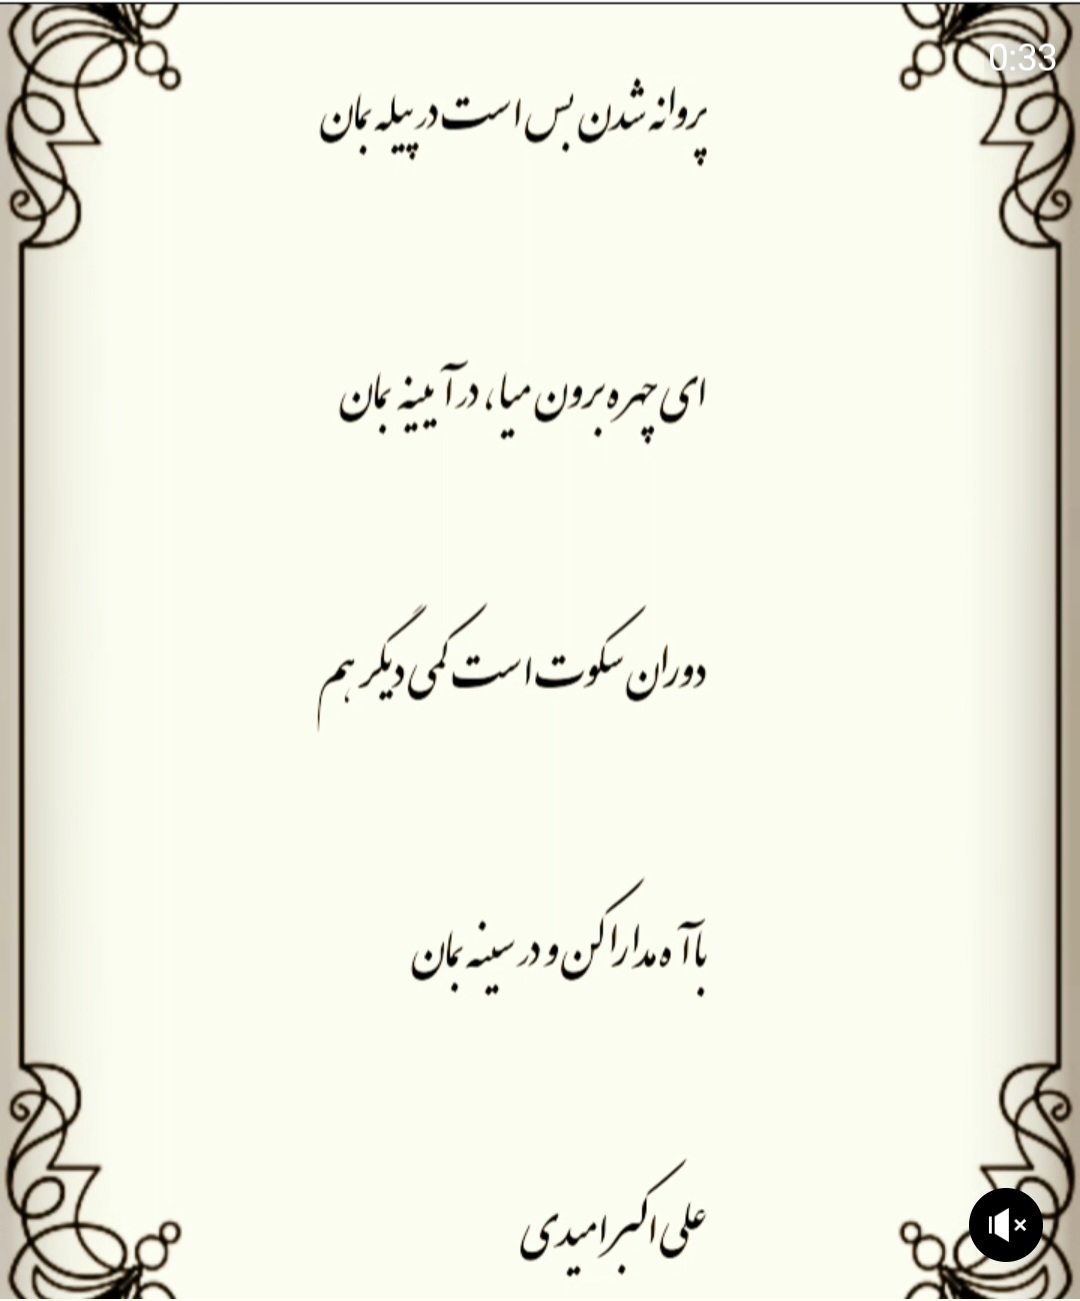 0:33
پروانه شدن بس است در پیله بمان
ای چهره برون میا، در آیینه بمان
دوران سکوت است کمی دیگر هم
با آه مدارا کن و در سینه بمان
علی اکبر امیدی